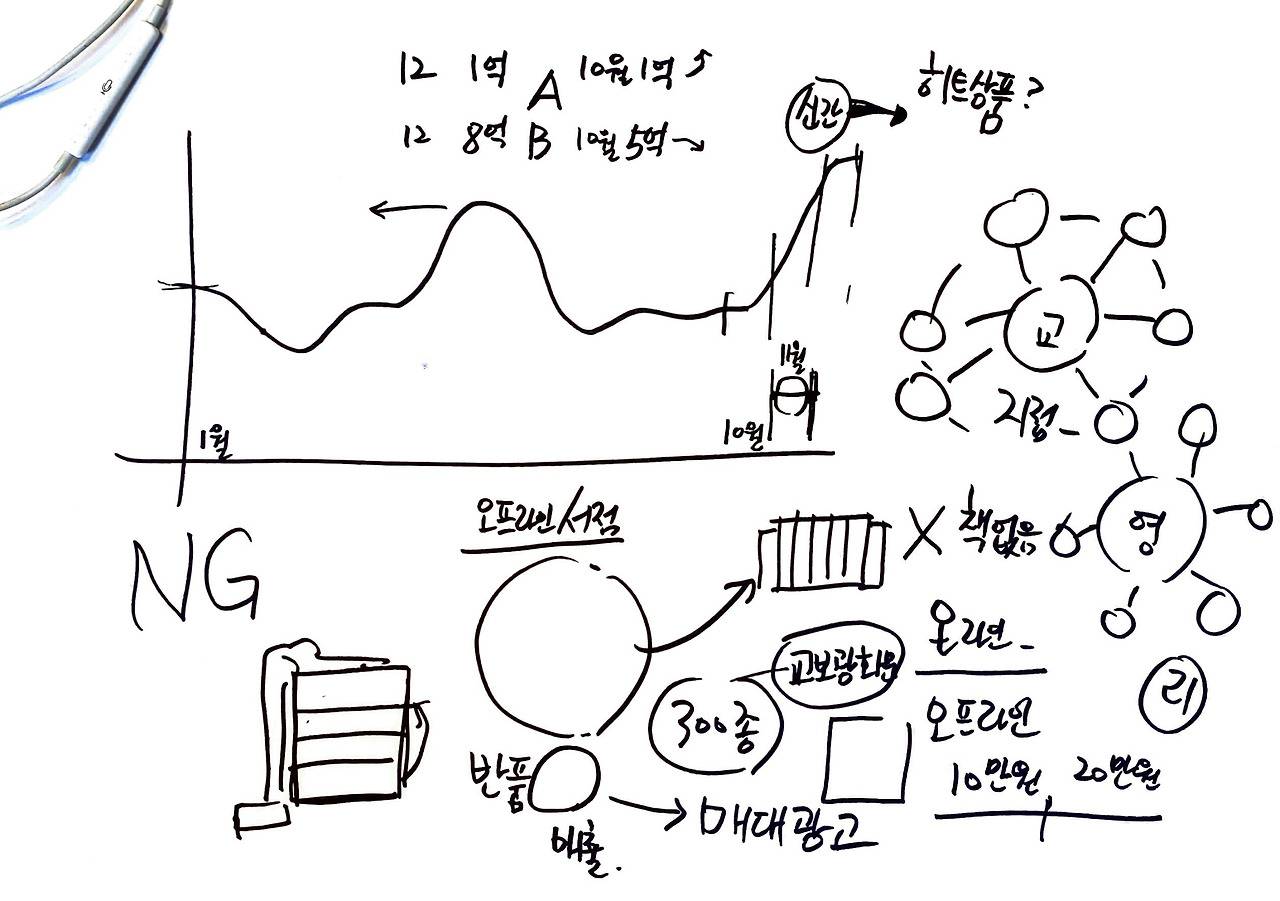 12 1억 A 10월 1억
12 8억 B 10월 5억
신간
히트상품?
교
지점
11월
1월
10월
오프라인 서점
NG
X 책없음
영
온라인
교보광화문
300종
리
오프라인
10만원 20만원
반품
매출.
매대광고